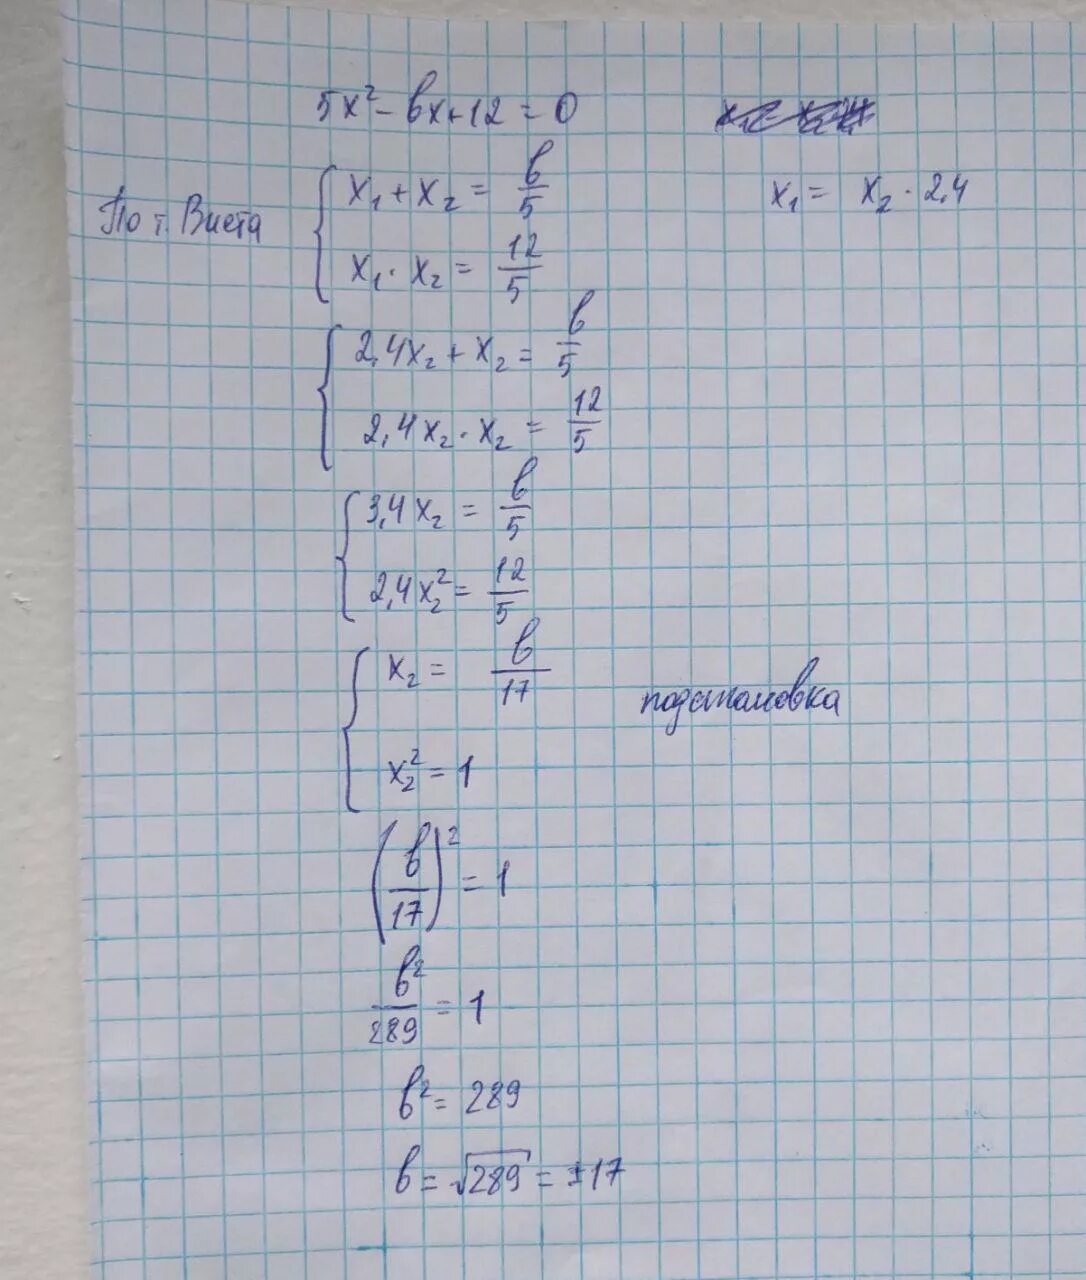 5x² - bx + 12 = 0
x₁ = x₂ · 2,4
По т. Виета
{ x₁ + x₂ = b/5
x₁ · x₂ = 12/5
{ 2,4x₂ + x₂ = b/5
2,4x₂ · x₂ = 12/5
{ 3,4x₂ = b/5
2,4x₂² = 12/5
{ x₂ = b/17
x₂² = 1
подстановка
(b/17)² = 1
b²/289 = 1
b² = 289
b = √289 = ±17